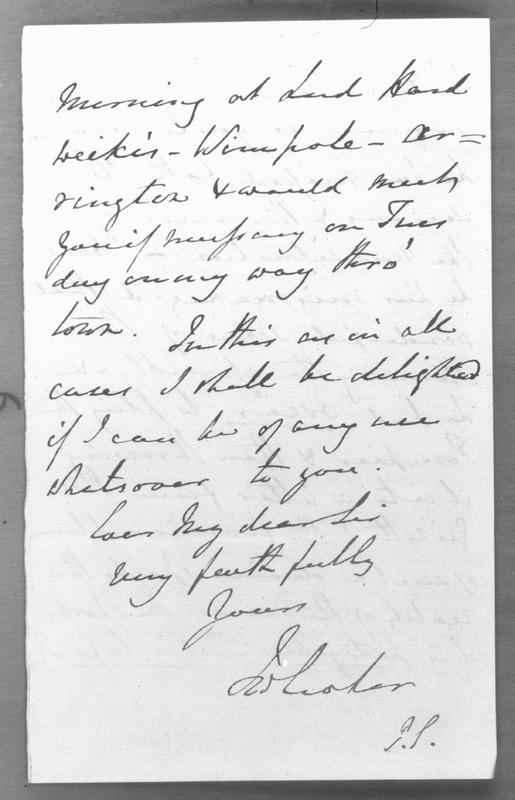 Morning at Lord Hard
weeke's - Wimpole - Ar=
rington & would meet
you if necessary on Tues
day on my way thro'
town. In this as in all
cases I shall be delighted
if I can be of any use
whatsoever to you.
Ever My dear Sir
very faithfully
Yours
P.S.